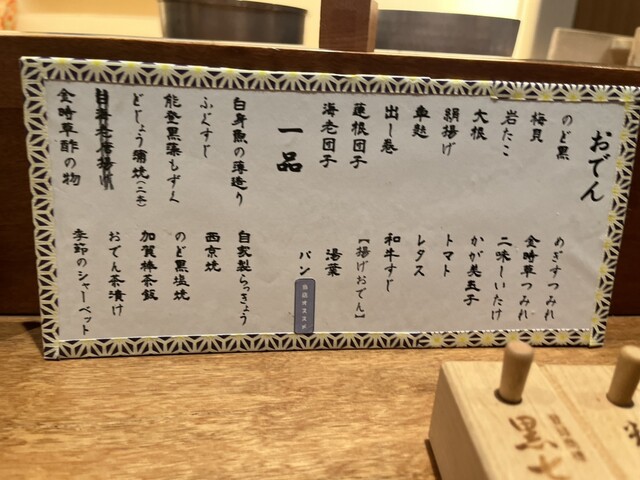 おでん
のど黒
梅貝
岩たこ
大根
絹揚げ
車麩
出し巻
蓮根団子
海老団子
めぎすつみれ
金時草つみれ
二味しいたけ
かが美玉子
トマト
レタス
和牛すじ
【揚げおでん】
湯葉
パン
当店オススメ
一品
白身魚の薄造り
ふぐすじ
能登黒藻もずく
どじょう蒲焼(二本)
金時草酢の物
自家製らっきょう
西京焼
のど黒塩焼
加賀棒茶飯
おでん茶漬け
季節のシャーベット
黒七